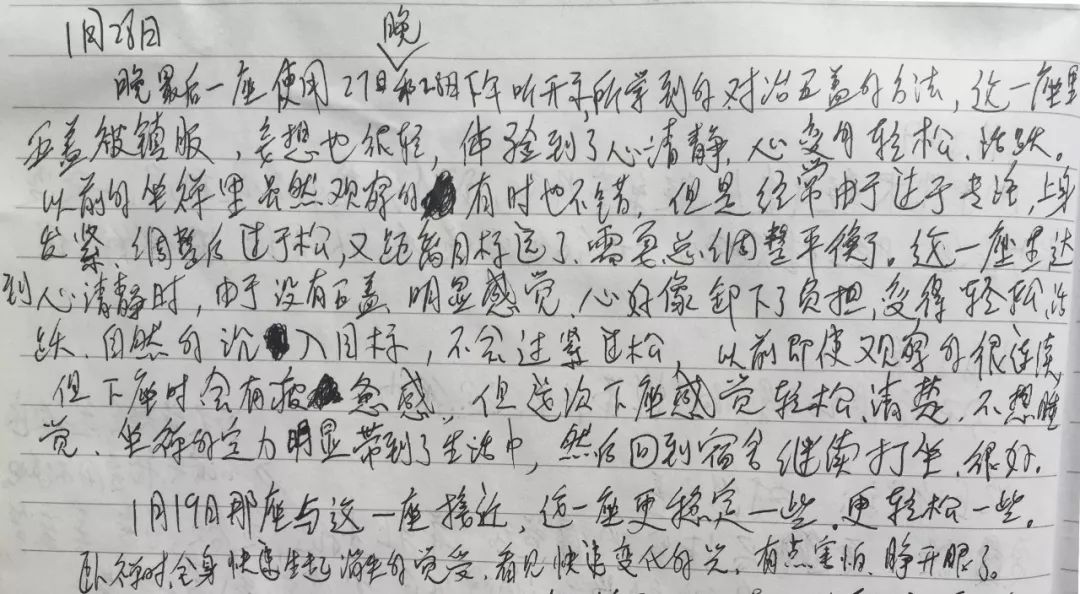 1月28日
晚
晚最后一座使用27日和28日下午听开示所学到的对治五盖的方法,这一座里
五盖被镇服,妄想也很轻,体验到了心清静,心变的轻松、活跃。
以前的坐禅里虽然观察的有时也不错,但是经常由于过于专注,上身
发紧、调整后过于松,又距离目标远了,需要总调整平衡了。这一座里达
到心清静时,由于没有五盖,明显感觉,心好像卸下了负担,变得轻松活
跃、自然的沉入目标,不会过紧过松,以前即使观察的很连续,
但下座时会有疲惫感,但这次下座感觉轻松、清楚、不想睡
觉、坐禅的定力明显带到了生活中,然后回到宿舍继续打坐,很好。
1月19日那座与这一座接近,这一座更稳定一些,更轻松一些。
卧禅时,全身快速生起的觉受,看见快速变化的光,有点害怕,睁开眼了。